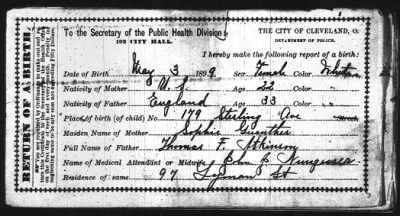 To the Secretary of the Public Health Division:
102 CITY HALL.
THE CITY OF CLEVELAND, O.
DEPARTMENT OF POLICE.
I hereby make the following report of a birth:
Date of Birth May 3 1899 Sex Female Color White
Nativity of Mother U. S. Age 22
Nativity of Father England Age 33
Place of birth (of child) No. 179 Sterling Ave
Maiden Name of Mother Sophie Guenther
Full Name of Father Thomas F. Atkinson
Name of Medical Attendant or Midwife John
Residence of same 97 Lyman St
RETURN OF A BIRTH.